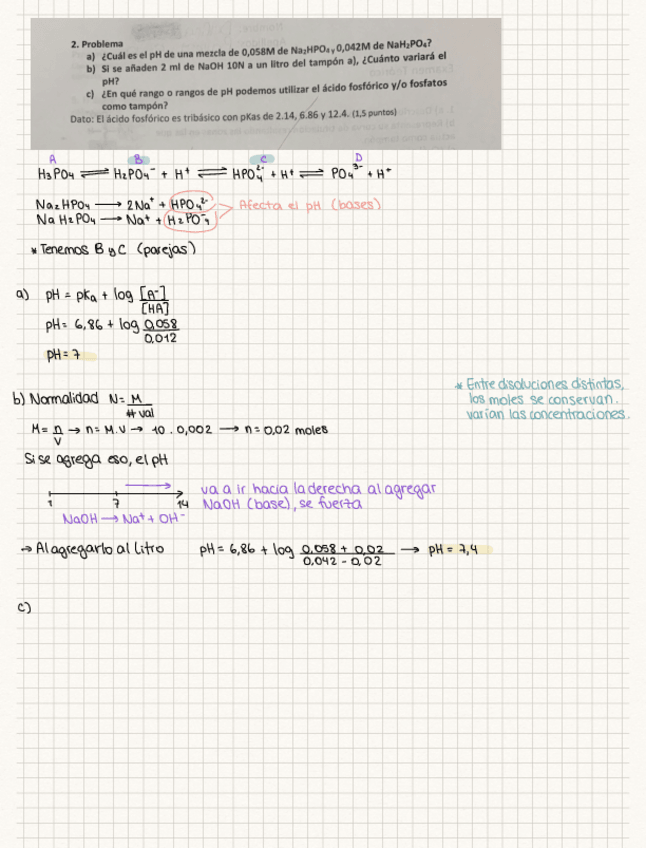 2. Problema
a) ¿Cuál es el pH de una mezcla de 0,058M de Na₂HPO₄ y 0,042M de NaH₂PO₄?
b) Si se añaden 2 ml de NaOH 10N a un litro del tampón a), ¿Cuánto variará el
pH?
c) ¿En qué rango o rangos de pH podemos utilizar el ácido fosfórico y/o fosfatos
como tampón?
Dato: El ácido fosfórico es tribásico con pKas de 2.14, 6.86 y 12.4. (1,5 puntos)
A B C D
H₃PO₄ ⇌ H₂PO₄⁻ + H⁺ ⇌ HPO₄²⁻ + H⁺ ⇌ PO₄³⁻ + H⁺
Na₂HPO₄ → 2Na⁺ + HPO₄²⁻
Afecta el pH (bases)
NaH₂PO₄ → Na⁺ + H₂PO⁻₄
* Tenemos B y C (parejas)
a) pH = pKa + log [A⁻]
[HA]
pH = 6,86 + log 0,058
0,012
pH = 7
b) Normalidad N = M
# val
* Entre disoluciones distintas,
los moles se conservan.
varían las concentraciones.
M = n → n = M.V → 10 . 0,002 → n = 0,02 moles
V
Si se agrega eso, el pH
1 7 14
va a ir hacia la derecha al agregar
NaOH (base), se fuerta
NaOH → Na⁺ + OH⁻
→ Al agregarlo al Litro pH = 6,86 + log 0,058 + 0,02 → pH = 7,4
0,042 - 0,02
c)